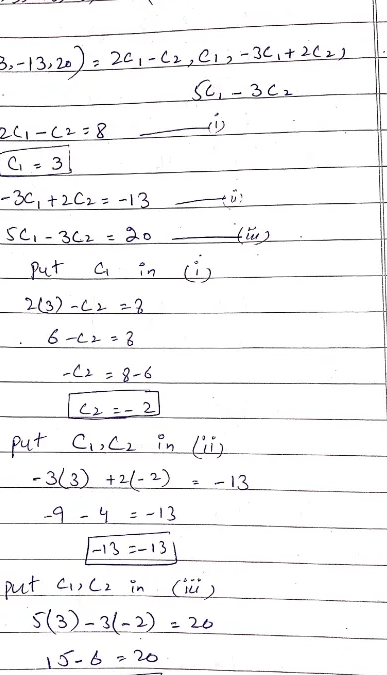 3,-13,20) = 2C₁-C₂, C₁, -3C₁+2C₂,
5C₁-3C₂
2C₁-C₂=8 (i)
C₁ = 3
-3C₁+2C₂ = -13 (ii)
5C₁-3C₂ = 20 (iii)
put C₁ in (i)
2(3)-C₂ = 8
6-C₂ = 8
-C₂ = 8-6
C₂ = -2
put C₁,C₂ in (ii)
-3(3) +2(-2) = -13
-9 - 4 = -13
-13 = -13
put C₁,C₂ in (iii)
5(3)-3(-2) = 20
15-6 = 20